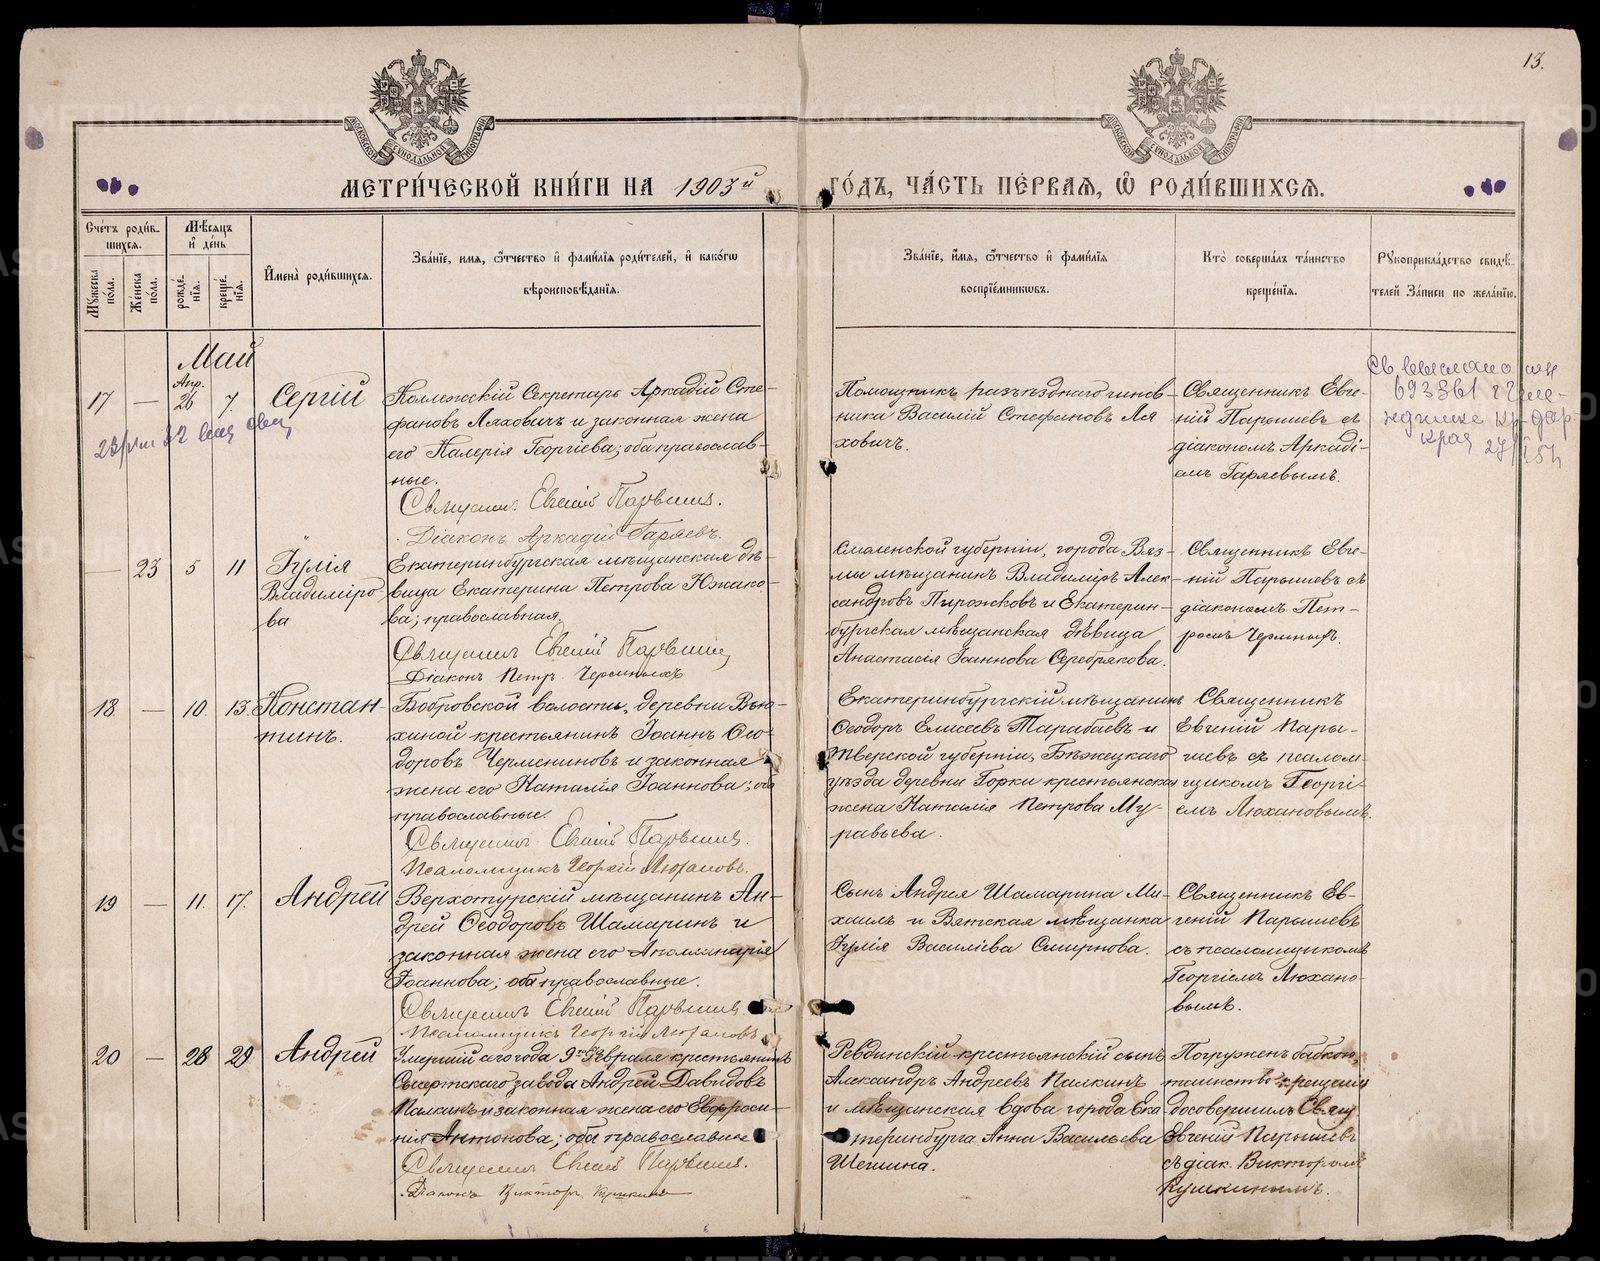 13.
МОСКОВСКОЙ СѴНОДАЛЬНОЙ ТИПОГРАФІИ
МОСКОВСКОЙ СѴНОДАЛЬНОЙ ТИПОГРАФІИ
МЕТРИ́ЧЕСКОЙ КНИ́ГИ НА 1903й ГО́ДЪ, ЧА́СТЬ ПЕ́РВАѦ, Ѽ РОДИ́ВШИХСѦ.
Сче́тъ роди́в-
шихсѧ.
Мꙋ́жеска
по́ла.
Же́нска
по́ла.
Мѣ́сѧцъ
и҆ де́нь
рожде́-
нїѧ.
креще́-
нїѧ.
И҆мена̀ роди́вшихсѧ.
Зва́нїе, и҆мѧ, ѻ҆́тчество и҆ фами́лїѧ роди́телей, и҆ како́гѡ
вѣроисповѣ́данїѧ.
Зва́нїе, и҆́мѧ, ѻ҆́тчество и҆ фами́лїѧ
воспрїе́мникѡвъ.
Кто̀ соверша́лъ та́инство
креще́нїѧ.
Рꙋкоприкла́дство свидѣ́-
телей За́писи по жела́нїю.
Май
17 — Апр. 26 7. Сергій
Коллежскій Секретарь Аркадій Сте-
фановъ Ляховичъ и законная жена
его Валерія Георгіева; оба православ-
ные.
Священникъ Евгеній Парышевъ.
Діаконъ Аркадій Гаряевъ.
Помощникъ разъѣзднаго чинов-
ника Василій Стефановъ Ля
ховичъ.
Священникъ Евге-
ній Парышевъ съ
діакономъ Аркаді-
емъ Гаряевымъ.
— 23 5 11 Іулія
Владиміро-
ва
Екатеринбургская мѣщанская дѣ-
вица Екатерина Петрова Южако-
ва; православная.
Священникъ Евгеній Парышевъ
Діаконъ Петръ
Смоленской губерніи, города Вяз-
мы мѣщанинъ Владиміръ Алек-
сандровъ Пирожковъ и Екатерин-
бургская мѣщанская дѣвица
Анастасія Іоаннова Серебрякова.
Священникъ Евге-
ній Парышевъ съ
діакономъ Пет-
ромъ
18. — 10. 13. Констан-
тинъ.
Бобровской волости, деревни Вью-
хиной крестьянинъ Іоаннъ Ѳео-
доровъ Чермениновъ и законная
жена его Наталія Іоаннова; оба
православные.
Священникъ Евгеній Парышевъ.
Псаломщикъ Георгій Люхановъ.
Екатеринбургскій мѣщанинъ
Ѳеодоръ Елисеевъ Тарабаевъ и
Тверской губерніи, Бѣжецкаго
уѣзда деревни Горки крестьянская
жена Наталія Петрова Му-
равьева.
Священникъ
Евгеній Пары-
шевъ съ псалом
щикомъ Георгі-
емъ Люхановымъ.
19 — 11. 17. Андрей
Верхотурскій мѣщанинъ Ан-
дрей Ѳеодоровъ Шамаринъ и
законная жена его Аполлинарія
Іоаннова; оба православные.
Священникъ Евгеній Парышевъ
Псаломщикъ Георгій Люхановъ
Сынъ Андрея Шамарина Ми-
хаилъ и Вятская мѣщанка
Іулія Василіева Смирнова.
Священникъ Ев-
геній Парышевъ
съ псаломщикомъ
Георгіемъ Люхано-
вымъ.
20 — 28 29 Андрей
Умершій сего года 9го Февраля крестьянинъ
Сысертскаго завода Андрей Давидовъ
Палкинъ и законная жена его Евфроси-
нія Антонова; оба православные
Священникъ Евгеній Парышевъ.
Діаконъ Викторъ Кушкинъ
Ревдинскій крестьянскій сынъ
Александръ Андреевъ Палкинъ
и мѣщанская вдова города Ека
теринбурга Анна Васильева
Шешина.
Погруженъ бабкою,
таинство крещенія
досовершилъ Свящ
Евгеній Парышевъ
съ діак. Викторомъ
Кушкинымъ.